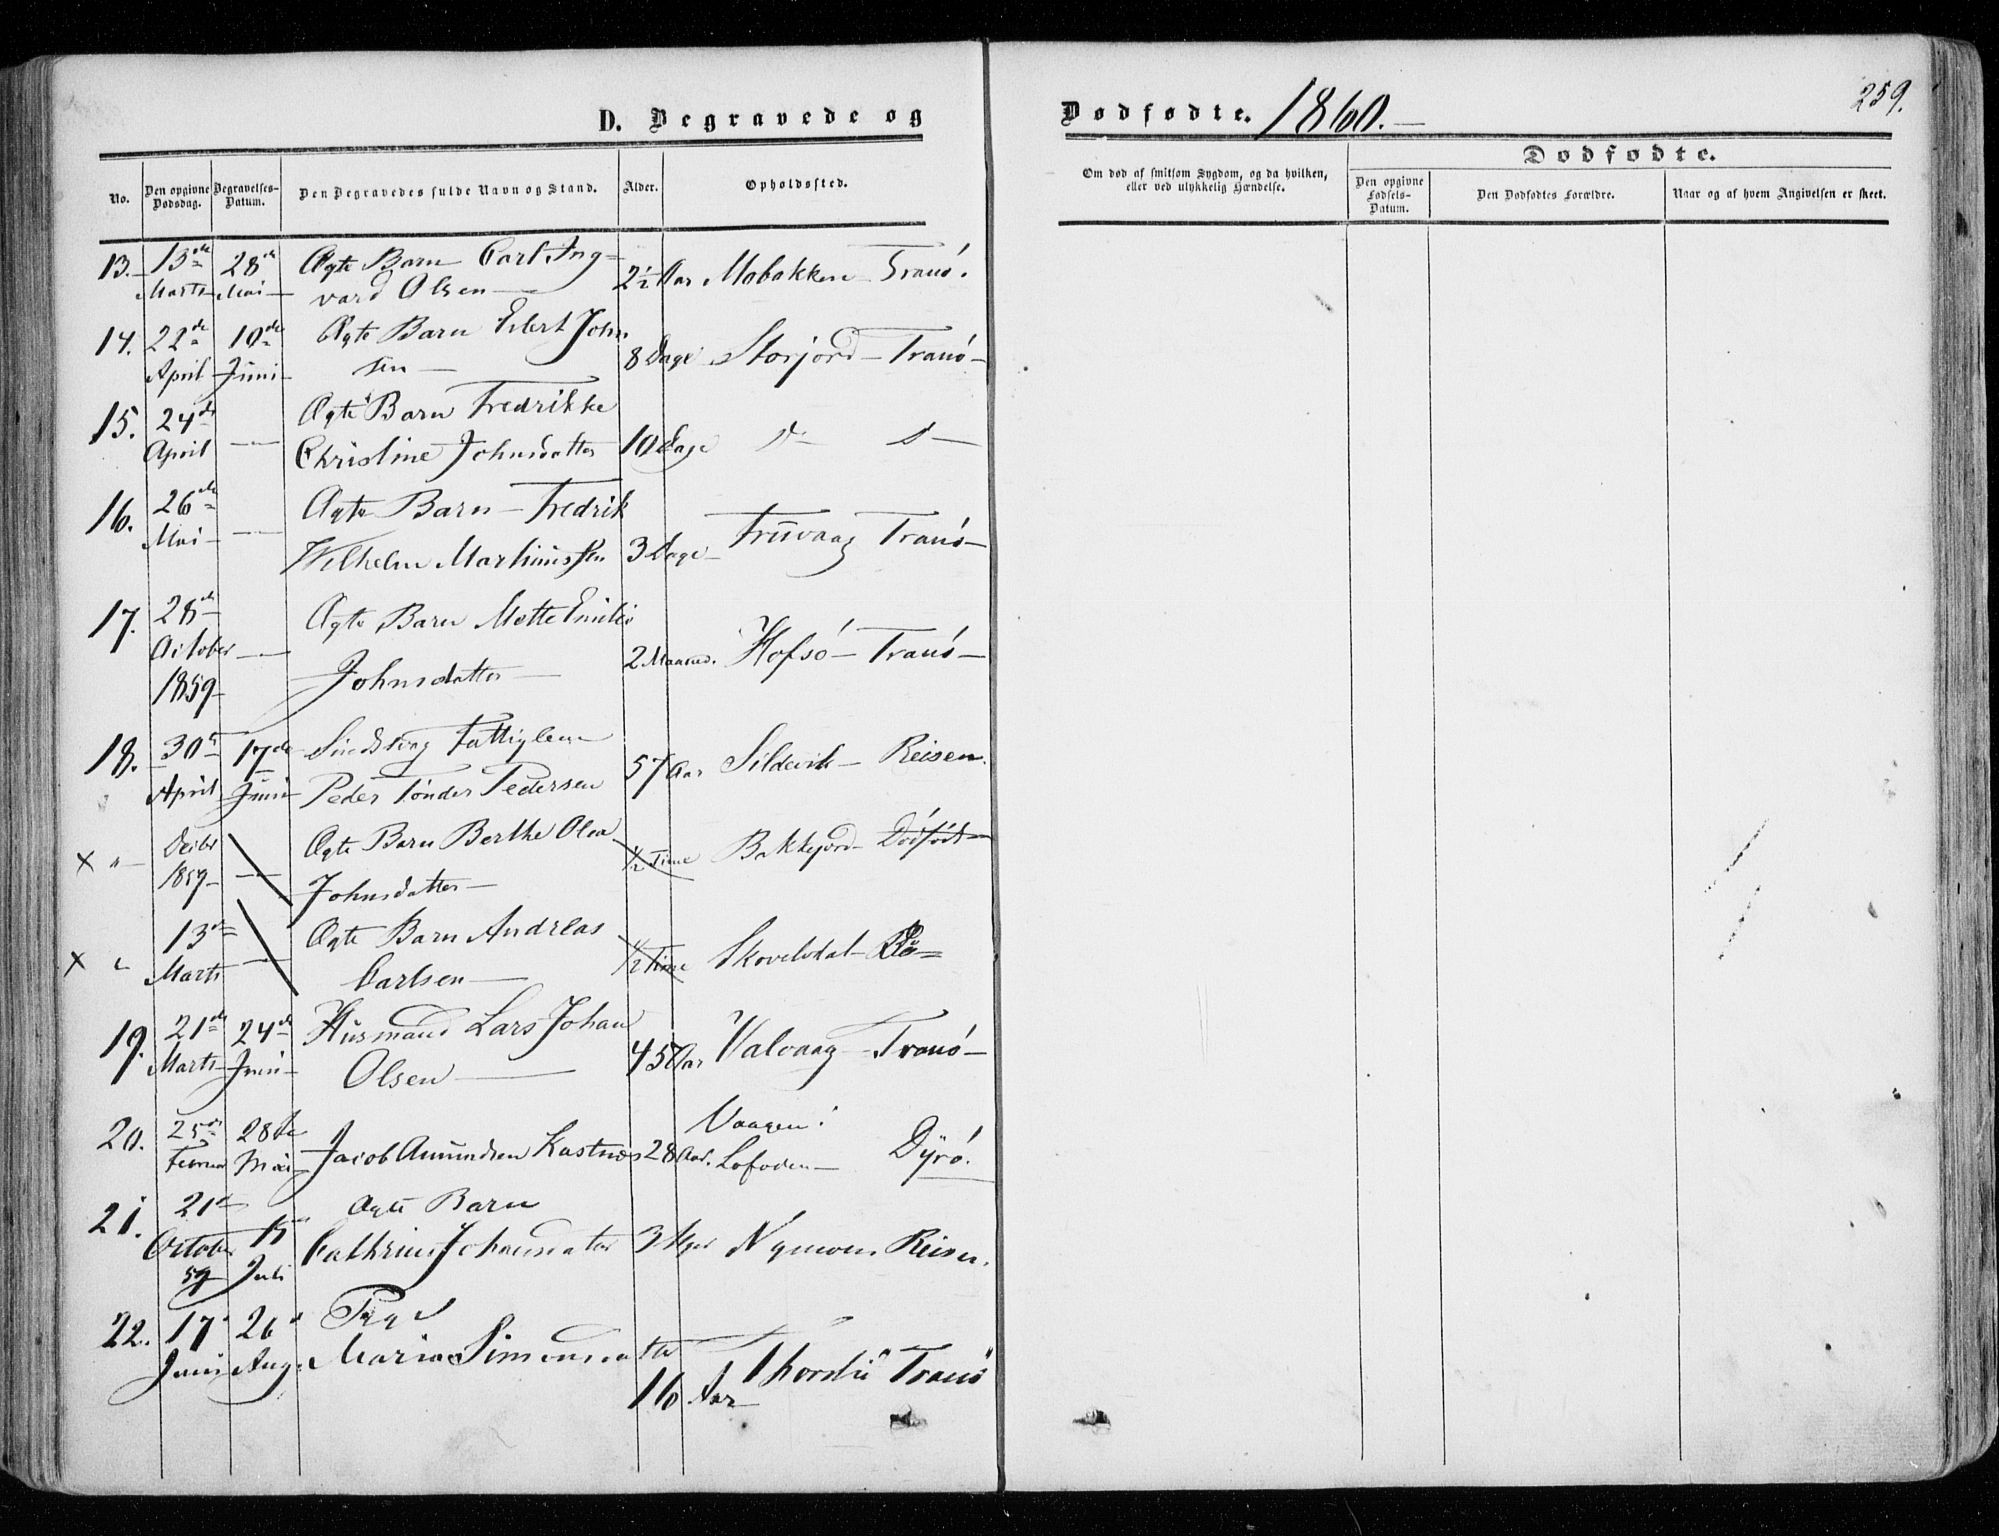 D. Begravede og
Dødfødte. 1860.
259.
No.
Den opgivne Dødsdag.
Begravelses-Datum.
Den Begravedes fulde Navn og Stand.
Alder.
Opholdssted.
Om død af smitsom Sygdom, og da hvilken,
eller ved ulykkelig Hændelse.
Dødfødte.
Den opgivne Fødsels-Datum.
Den Dødfødtes Forældre.
Naar og af hvem Angivelsen er skeet.
13. 13de 28de Ægte Barn Carl Ing-
Marts Mai vard Olsen 2½ Aar Mobakken Tranö.
14. 22de 10de Ægte Barn Eilert John
April Juni sen 8 Dage Storjord Tranö
15. 24de Ægte Barn Fredrikke
April Christine Johnsdatter 10 Dage d d
16. 26de Ægte Barn Fredrik
Mai Wilhelm Martinussen 3 Dage Trövaag Tranö
17. 28de Ægte Barn Mette Emilie
October
1859 Johnsdatter 2 Maaned. Hofsö Tranö
18. 30te 17de Sindssvag Fattiglem
April Juni Peder Tönder Pedersen 57 Aar Sildevik Reisen.
× " Decbr Ægte Barn Berthe Olea
1859 Johnsdatter ½ Time Bakkejord Dödfödt
13de Ægte Barn Andreas
× " Marts Carlsen ½ Time Do
19. 21de 24de Husmand Lars Johan
Marts Juni Olsen 45 Aar Valvaag Tranö
20. 25de 28de Vaagen i
Februar Mai Jacob Amundsen Kastnæs 28 Aar. Lofoden Dÿrö.
21. 21de Ægte Barn
October 15 Cathrine Johannesdatter 3 Uger Reisen.
59 Juli
22. 17de 26de Pige
Juni Aug. Maria Simonsdatter
16 Aar Tranö